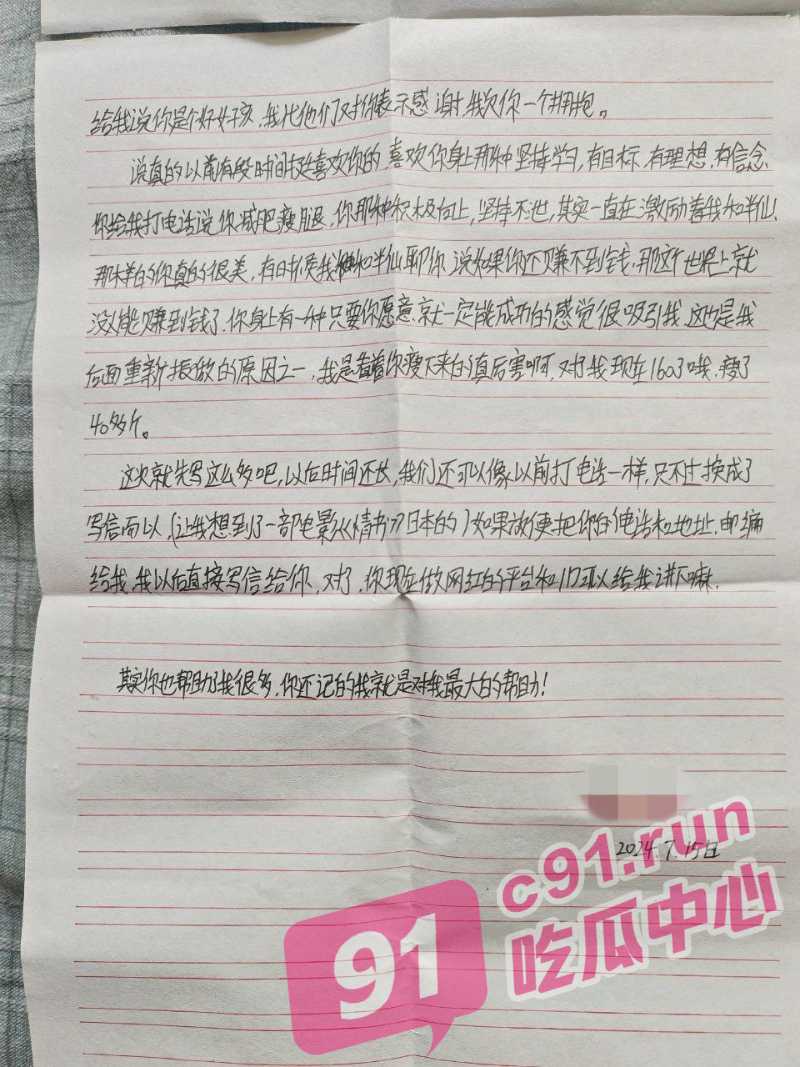 给我说你是个好女孩,我代他们对你表示感谢,我欠你一个拥抱。
说真的以前有段时间挺喜欢你的,喜欢你身上那种坚持学习,有目标,有理想,有信念.
你给我打电话说你减肥瘦腿,你那种积极向上,坚持不世,其实一直在激励着我和半仙.
那样的你真的很美,有时候我和半仙聊你说如果你还赚不到钱,那这个世界上就
没人能赚到钱了.你身上有一种只要你愿意就一定能成功的感觉很吸引我.这也是我
后面重新振做的原因之一,我是看着你瘦下来的真厉害啊,对我现在160了哦,瘦了
40多斤。
这次就先写这么多吧,以后时间还长,我们还可以像以前打电话一样,只不过换成了
写信而以(让我想到了一部电影《情书》日本的)如果放便把你的电话和地址,邮编
给我,我以后直接写信给你,对了,你现在做网红的平台和ID可以给我讲下嘛.
其实你也帮助了我很多,你还记的我就是对我最大的帮助!
2024.7.15日
c91.run
91
吃瓜中心